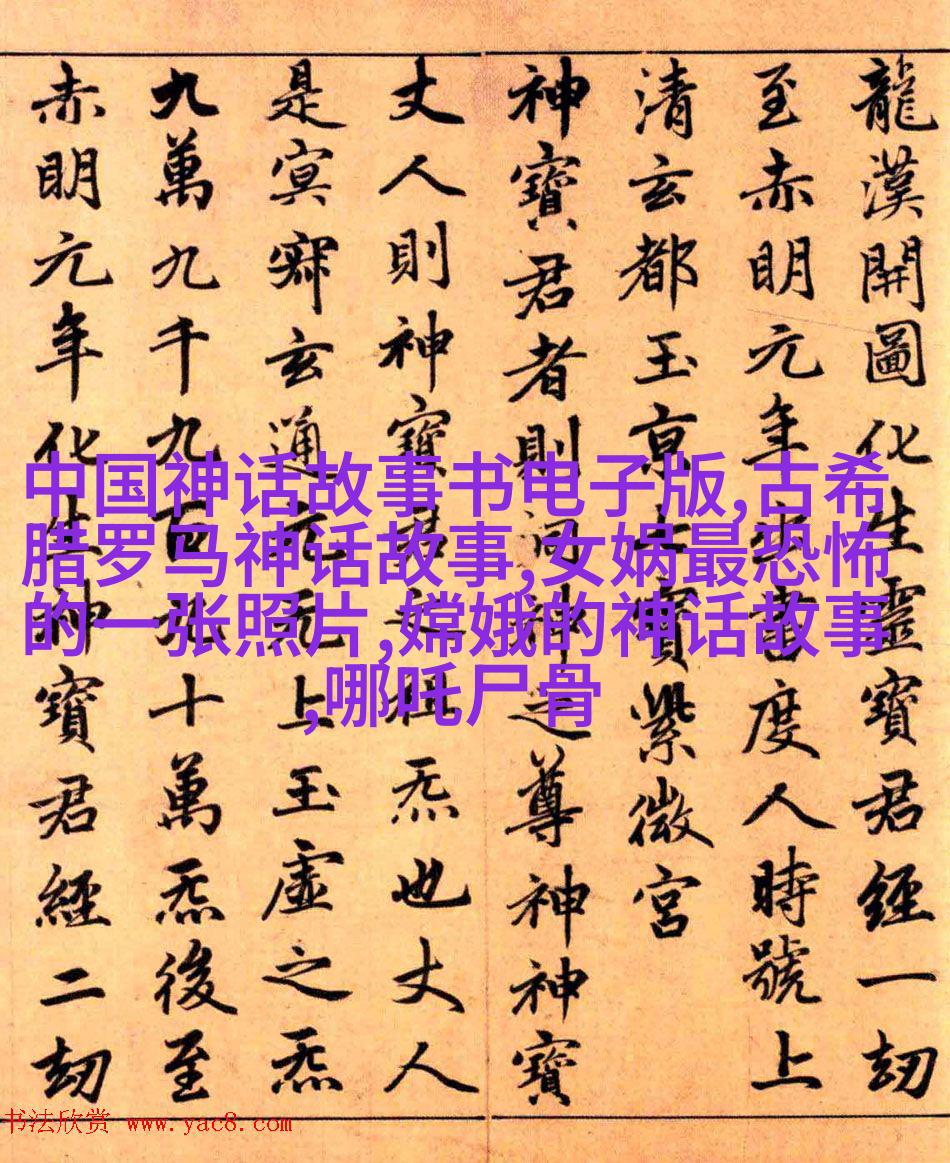 龍漢開圖化生靈寶君經一劫
至赤明元年出書度人時號上
清玄都玉京七寶紫微宮
神寶君者則洞神之尊神神寶
丈人則神寶君之祖炁也丈人
是冥寂玄通元无上玉虛之炁
九萬九千九百九十萬炁後至
赤明元年化生神寶君經二劫
中国神话故事书电子版,古希
腊罗马神话故事,女娲最恐怖
的一张照片,嫦娥的神话故事
,哪吒尸骨
书法欣赏 www.yac8.com